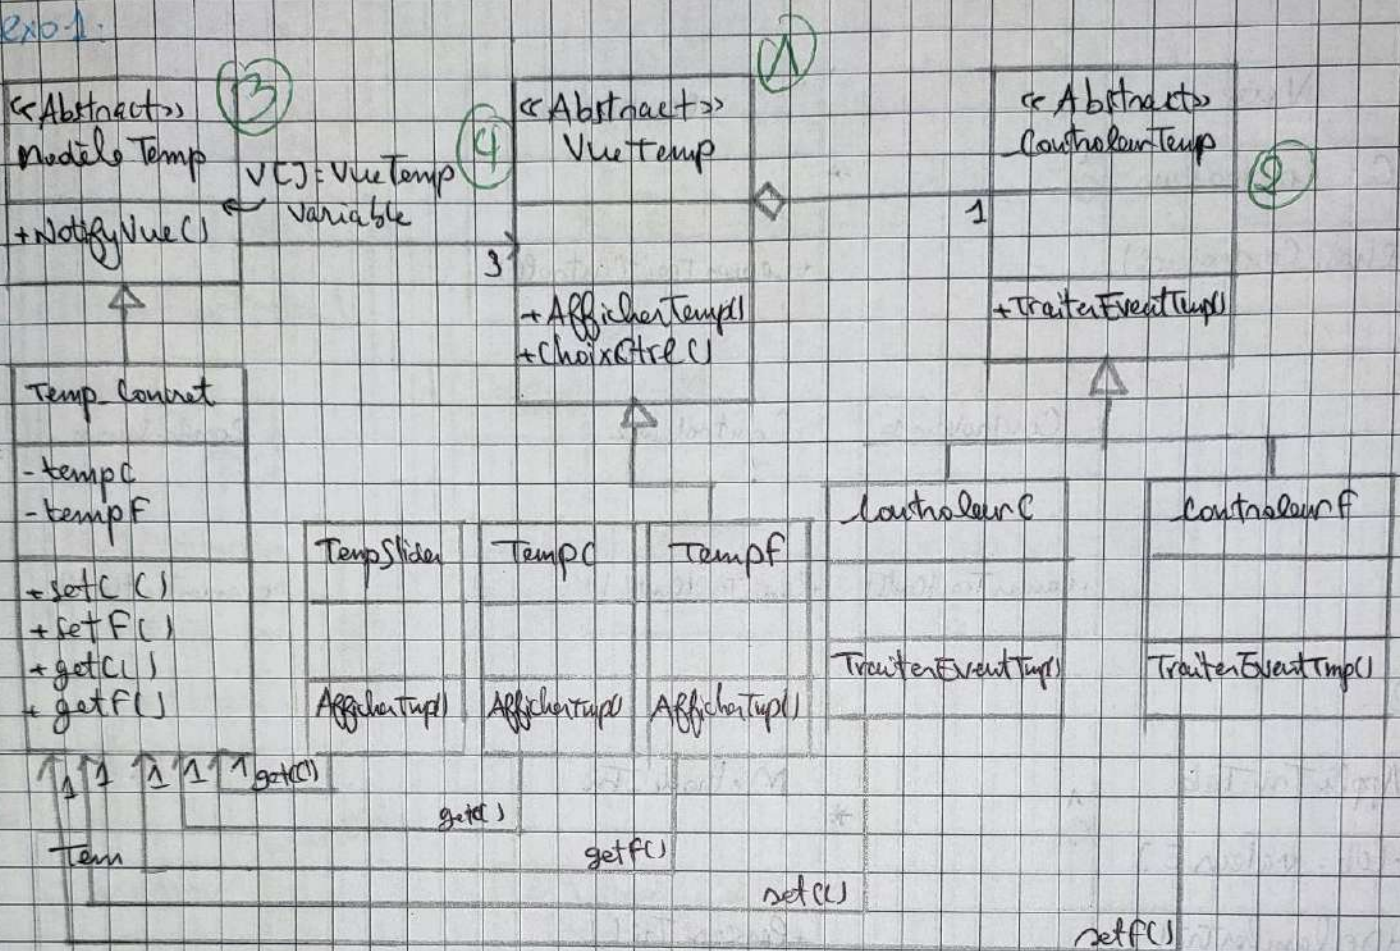 exo 1:
3
<<Abstract>>
Modèle Temp
+NotifyVue()
V[]: VueTemp
variable
4
3
1
<<Abstract>>
VueTemp
+AfficherTemp()
+ChoixCtrl()
<<Abstract>>
ControleurTemp
2
1
+TraiterEventTmp()
Temp_Concret
-tempC
-tempF
+setC()
+setF()
+getC()
+getF()
TempSlider
AfficherTmp()
TempC
AfficherTmp()
TempF
AfficherTmp()
ControleurC
TraiterEventTmp()
ControleurF
TraiterEventTmp()
1 1 1 1 1 getC()
getC()
Tem
getF()
setC()
setF()